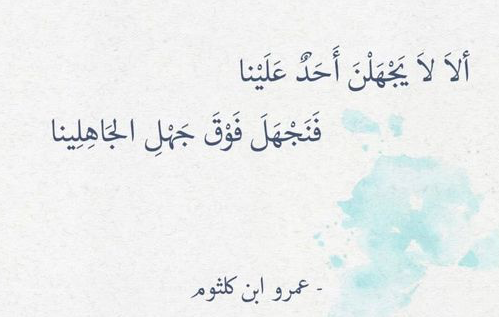 ألاَ لاَ يَجْهَلْنَ أَحَدٌ عَلَيْنا
فَنَجْهَلَ فَوْقَ جَهْلِ الجَاهِلِينا
- عمرو ابن كلثوم